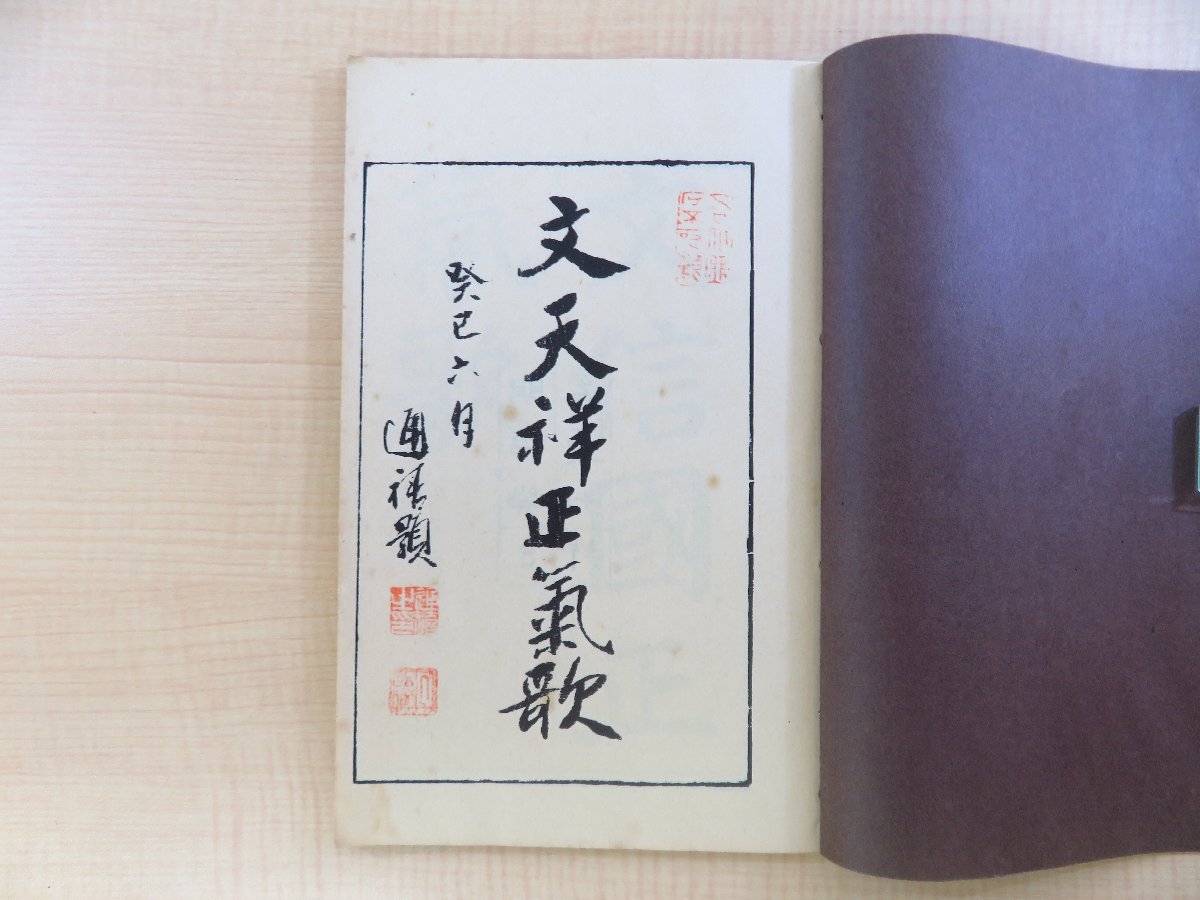 文天祥正氣歌
癸巳六月
通禧題